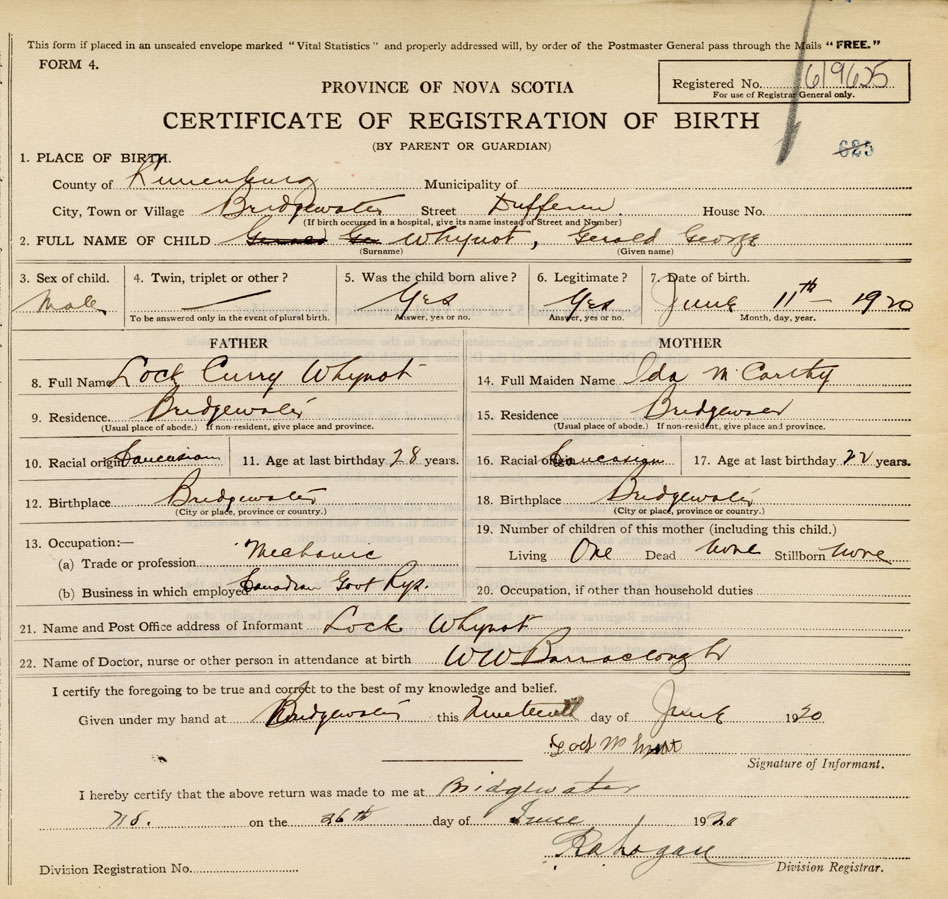 This form if placed in an unsealed envelope marked "Vital Statistics" and properly addressed will, by order of the Postmaster General pass through the Mails "FREE."
FORM 4.
Registered No. 619625
For use of Registrar General only.
PROVINCE OF NOVA SCOTIA
CERTIFICATE OF REGISTRATION OF BIRTH
(BY PARENT OR GUARDIAN)
625
1. PLACE OF BIRTH.
County of Lunenburg Municipality of
City, Town or Village Bridgewater Street Dufferin House No.
(If birth occurred in a hospital, give its name instead of Street and Number)
2. FULL NAME OF CHILD Gerald Ge Whynot, Gerald George
(Surname) (Given name)
3. Sex of child. 4. Twin, triplet or other? 5. Was the child born alive? 6. Legitimate? 7. Date of birth.
Male Yes Yes June 11th 1920
To be answered only in the event of plural birth. Answer, yes or no. Answer, yes or no. Month, day, year.
FATHER MOTHER
8. Full Name Lock Curry Whynot 14. Full Maiden Name Ida McCarthy
9. Residence. Bridgewater 15. Residence Bridgewater
(Usual place of abode.) If non-resident, give place and province. (Usual place of abode.) If non-resident, give place and province.
10. Racial origin Caucasian 11. Age at last birthday 28 years. 16. Racial origin Caucasian 17. Age at last birthday 22 years.
12. Birthplace Bridgewater 18. Birthplace Bridgewater
(City or place, province or country.) (City or place, province or country.)
13. Occupation:— 19. Number of children of this mother (including this child.)
(a) Trade or profession Mechanic Living One Dead None Stillborn None
(b) Business in which employed Canadian Govt Rys. 20. Occupation, if other than household duties
21. Name and Post Office address of Informant Lock Whynot
22. Name of Doctor, nurse or other person in attendance at birth WW Barraclough
I certify the foregoing to be true and correct to the best of my knowledge and belief.
Given under my hand at Bridgewater this Nineteenth day of June 1920
Lock Whynot
Signature of Informant.
I hereby certify that the above return was made to me at Bridgewater
N.S. on the 26th day of June 1920
Division Registration No. Division Registrar.